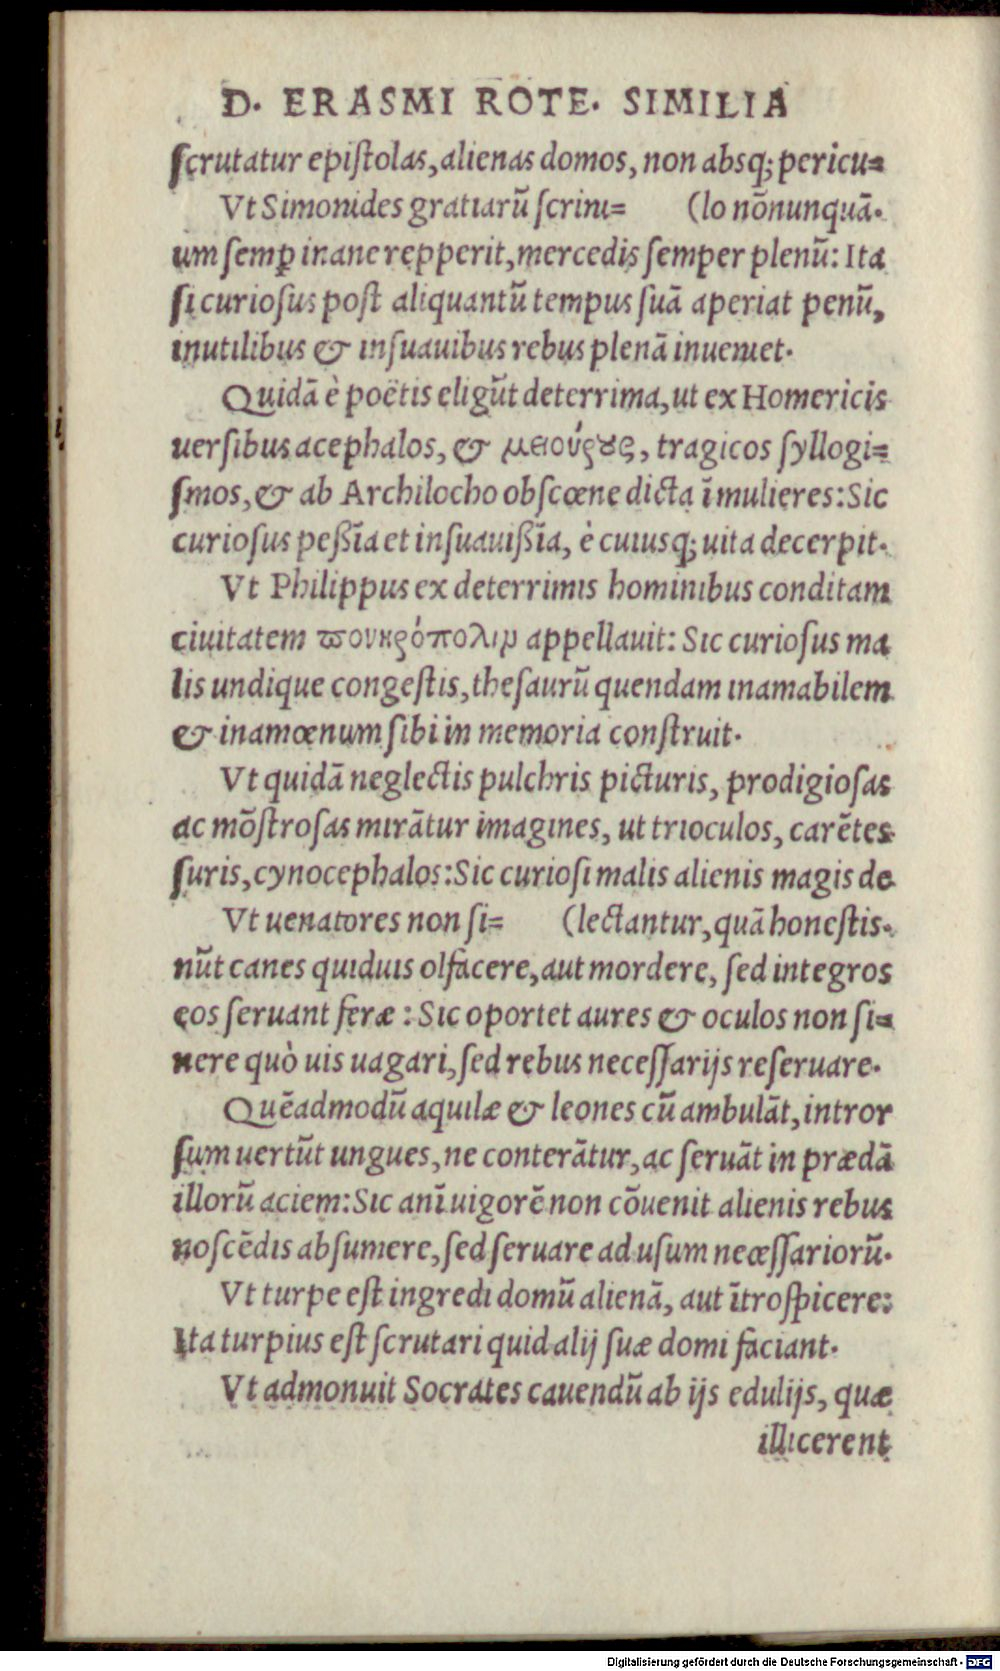 D. ERASMI ROTE. SIMILIA
ſcrutatur epiſtolas, alienas domos, non absq; pericu=
Vt Simonides gratiarũ ſcrini= (lo nõnunquã.
um ſemꝑ inane repperit, mercedis ſemper plenũ: Ita
ſi curioſus poſt aliquantũ tempus ſuã aperiat penũ,
inutilibus & inſuauibus rebus plenã inueniet.
Quidã è poëtis eligũt deterrima, ut ex Homericis
uerſibus acephalos, & μειούρȣς, tragicos ſyllogi=
ſmos, & ab Archilocho obſcœne dicta ĩ mulieres: Sic
curioſus peßĩa et inſuauißĩa, è cuiusq; uita decerpit.
Vt Philippus ex deterrimis hominibus conditam
ciuitatem ϖονηρόπολιμ appellauit: Sic curioſus ma
lis undique congeſtis, theſaurũ quendam inamabilem
& inamœnum ſibi in memoria conſtruit.
Vt quidã neglectis pulchris picturis, prodigioſas
ac mõſtroſas mirãtur imagines, ut trioculos, carẽtes
ſuris, cynocephalos: Sic curioſi malis alienis magis de
Vt uenatores non ſi= (lectantur, quã honeſtis.
nũt canes quiduis olfacere, aut mordere, ſed integros
eos ſeruant feræ: Sic oportet aures & oculos non ſi=
nere quò uis uagari, ſed rebus neceſſarijs reſeruare.
Quẽadmodũ aquilæ & leones cũ ambulãt, intror
ſum uertũt ungues, ne conterãtur, ac ſeruãt in prædã
illorũ aciem: Sic anĩ uigorẽ non cõuenit alienis rebus
noſcẽdis abſumere, ſed ſeruare ad uſum neceſſariorũ.
Vt turpe eſt ingredi domũ alienã, aut ĩtroſpicere:
Ita turpius eſt ſcrutari quid alij ſuæ domi faciant.
Vt admonuit Socrates cauendũ ab ijs edulijs, quæ
illicerent
Digitalisierung gefördert durch die Deutsche Forschungsgemeinschaft - DFG